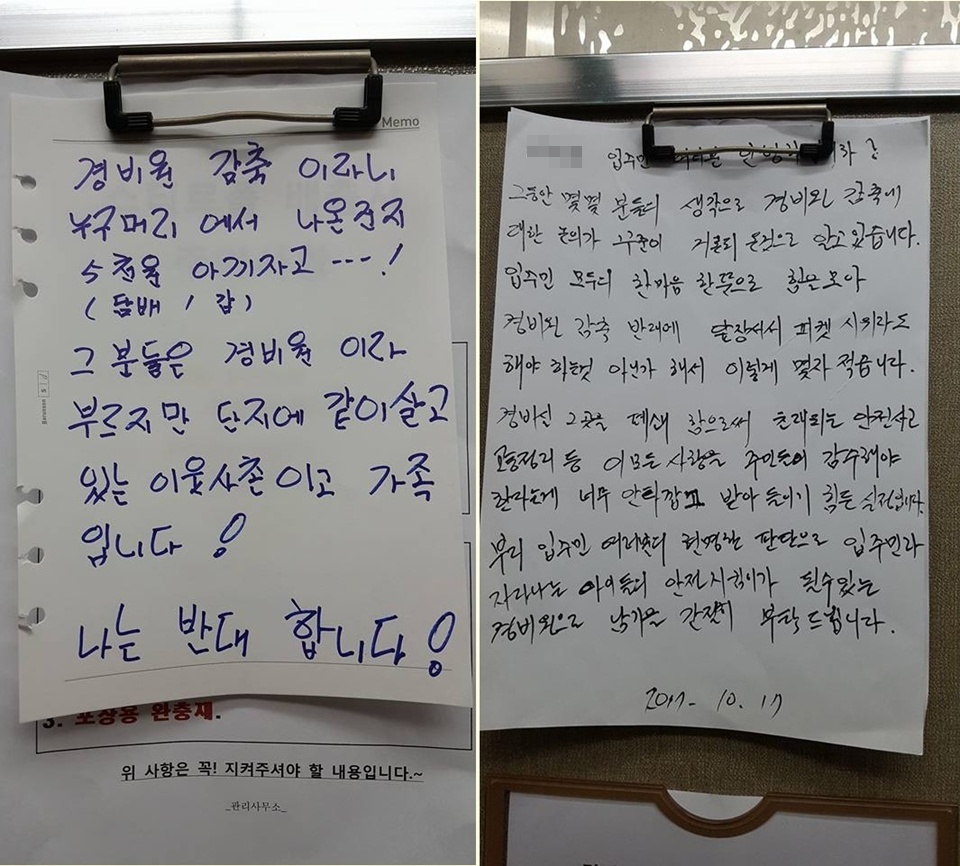 Memo
경비원 감축 이라니
누구머리 에서 나온건지
5천원 아끼자고 ---!
(담배 1 갑)
그 분들은 경비원 이라
부르지만 단지에 같이살고
있는 이웃사촌이고 가족
입니다 !
나는 반대 합니다!
3. 포장용 완충재.
위 사항은 꼭! 지켜주셔야 할 내용입니다.~
_관리사무소_
입주민
그동안 몇몇 분들의 생각으로 경비원 감축에
대한 논의가 꾸준이 거론되 온것으로 알고 있습니다.
입주민 모두의 한마음 한뜻으로 힘은 모아
경비원 감축 반대에 앞장서서 피켓 시위라도
해야 하는것 아닌가 해서 이렇게 몇자 적습니다.
경비실 그곳을 폐쇄 함으로써 초래되는 안전사고
교통정리 등 이 모든 사항을 주민들이 감수해야
한다는게 너무 안타깝고 받아들이기 힘든 실정입니다.
부디 입주민 여러분의 현명한 판단으로 입주민과
자라나는 아이들의 안전지킴이가 될수있는
경비원으로 남기를 간절히 부탁드립니다.
2017- 10. 17